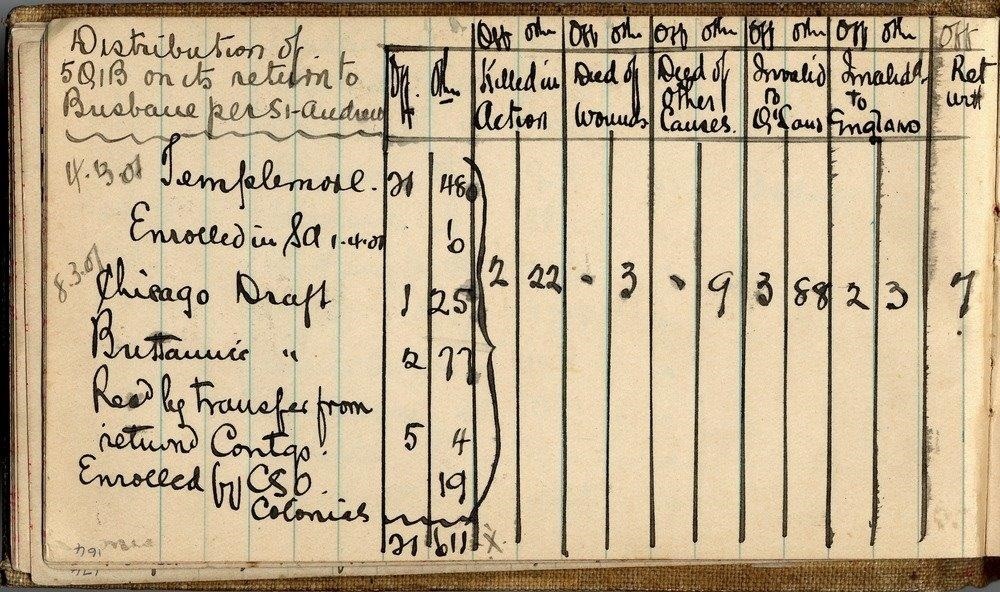 Distribution of
5QIB on its return to
Brisbane per St Andrew
Off. Oth.
Off Oth Off Oth Off Oth Off Oth Off Oth Off
Killed in Action
Died of Wounds
Died of Other Causes.
Invalid to Q'Land
Invalid to England
Ret
Templemore. 21 48
Enrolled in SA 1-4-01 6
8.3.01
Chicago Draft 1 25
Brittannic " 2 77
Recd by transfer from
returnd Contgs. 5 4
Enrolled by CSO 19
Colonials
2 22 - 3 - 9 3 88 2 3 7
611 X
164